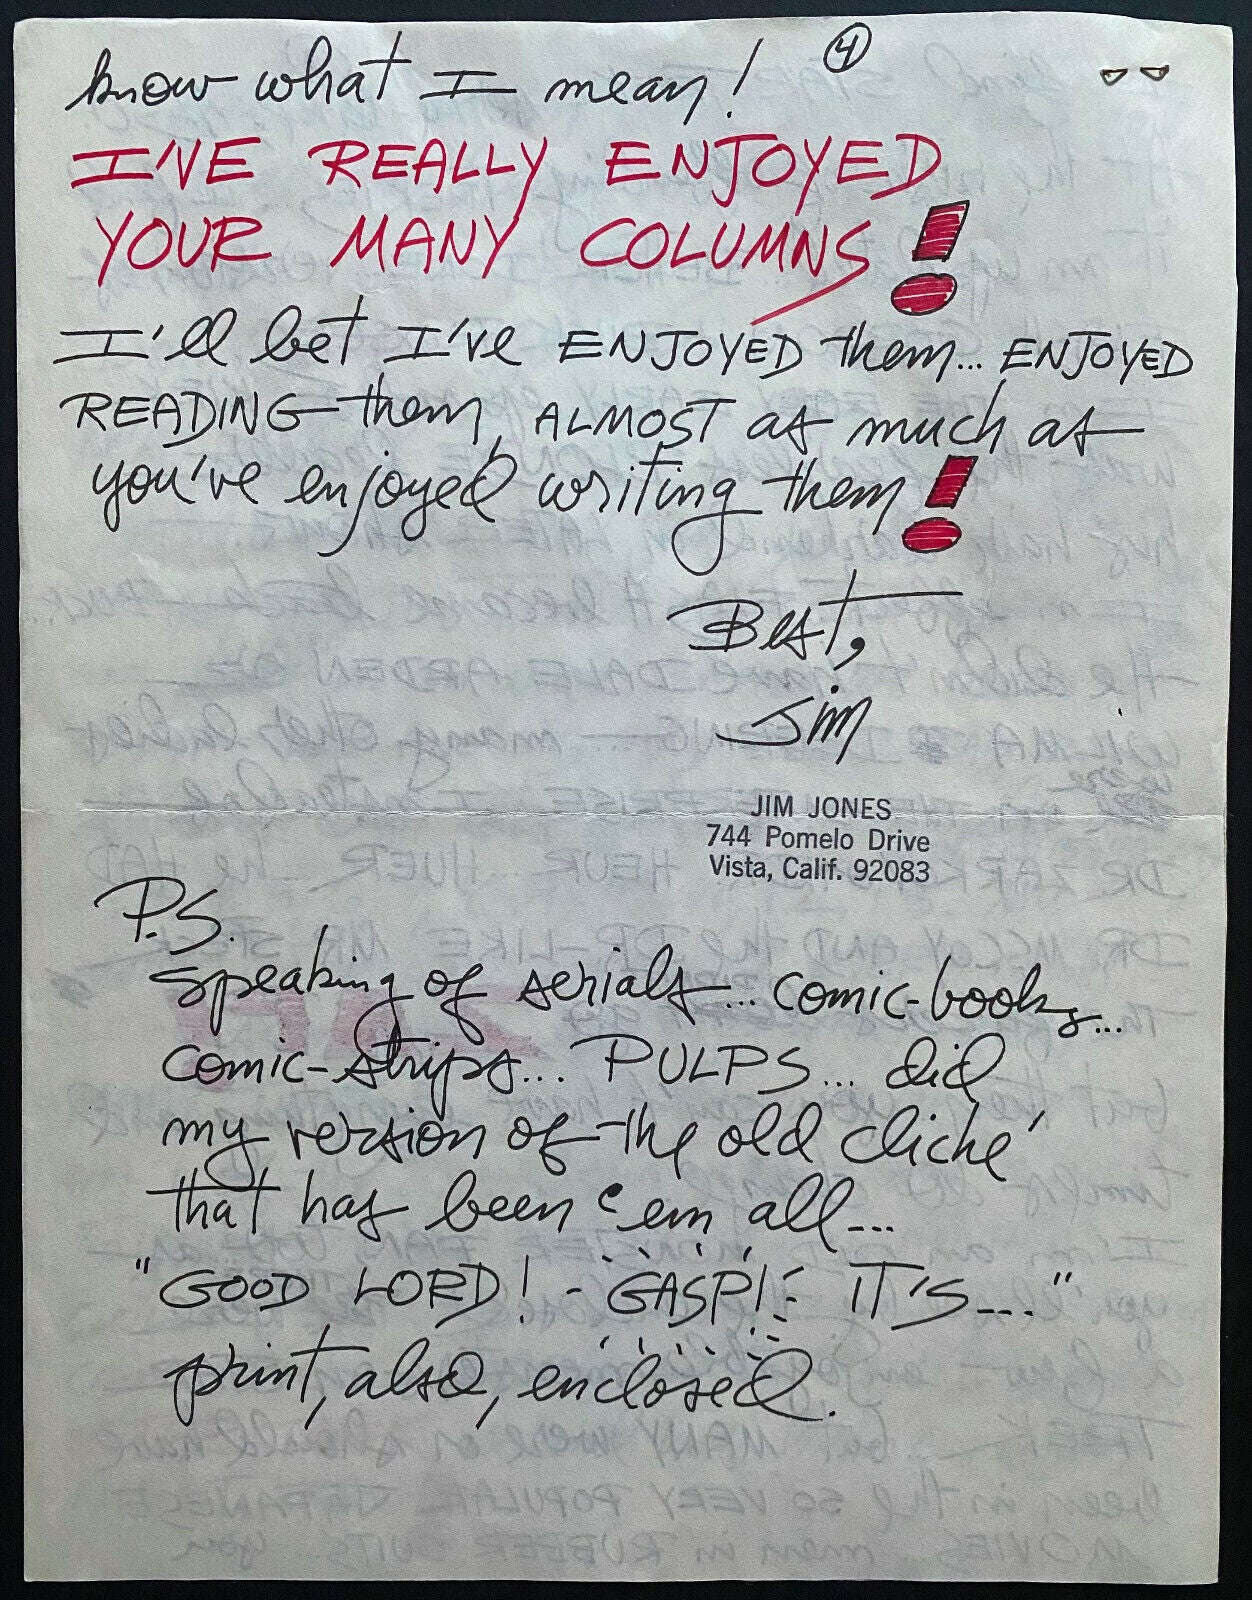 know what I mean! 4
I'VE REALLY ENJOYED
YOUR MANY COLUMNS!
I'll bet I've ENJOYED them... ENJOYED
READING them, ALMOST as much as
you've enjoyed writing them!
Best,
Jim
JIM JONES
744 Pomelo Drive
Vista, Calif. 92083
P.S.
Speaking of serials... comic-books...
comic-strips... PULPS... did
my version of the old cliché
that has been 'em all...
"GOOD LORD! - GASP! - IT'S...."
print, also, enclosed.